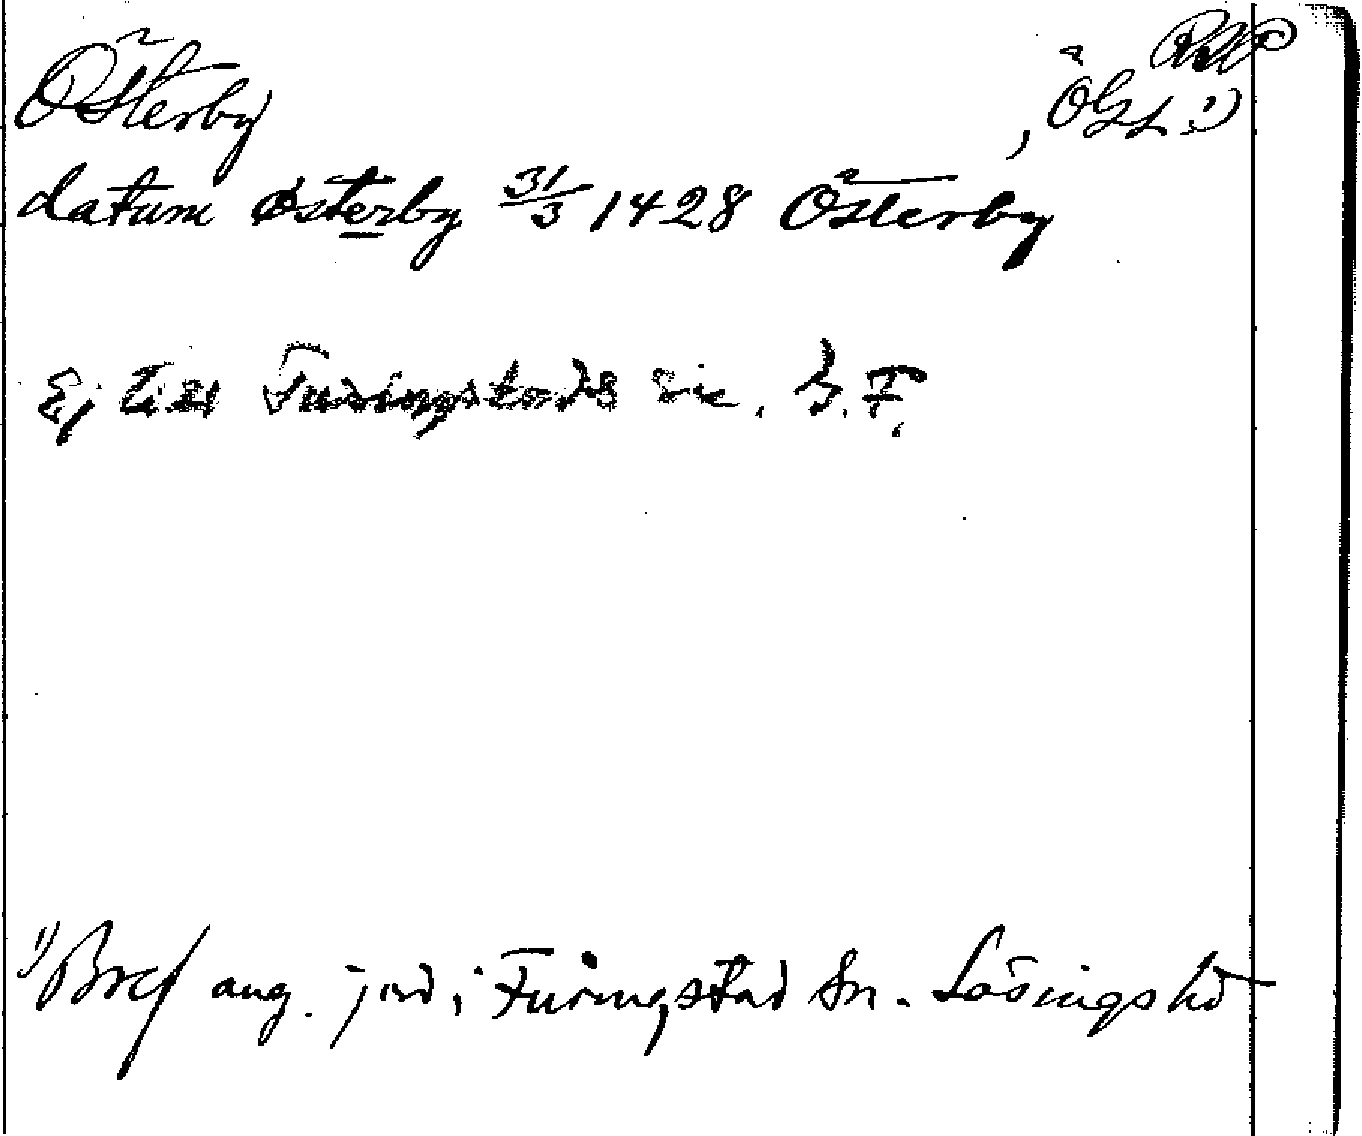 Österby
, ÖGL. ¹)
datum Østerby 31/3 1428 Österby
Ej till Furingstads sn. G. F.
¹) Bref ang. jord i Furingstad Sn. Lösings hd